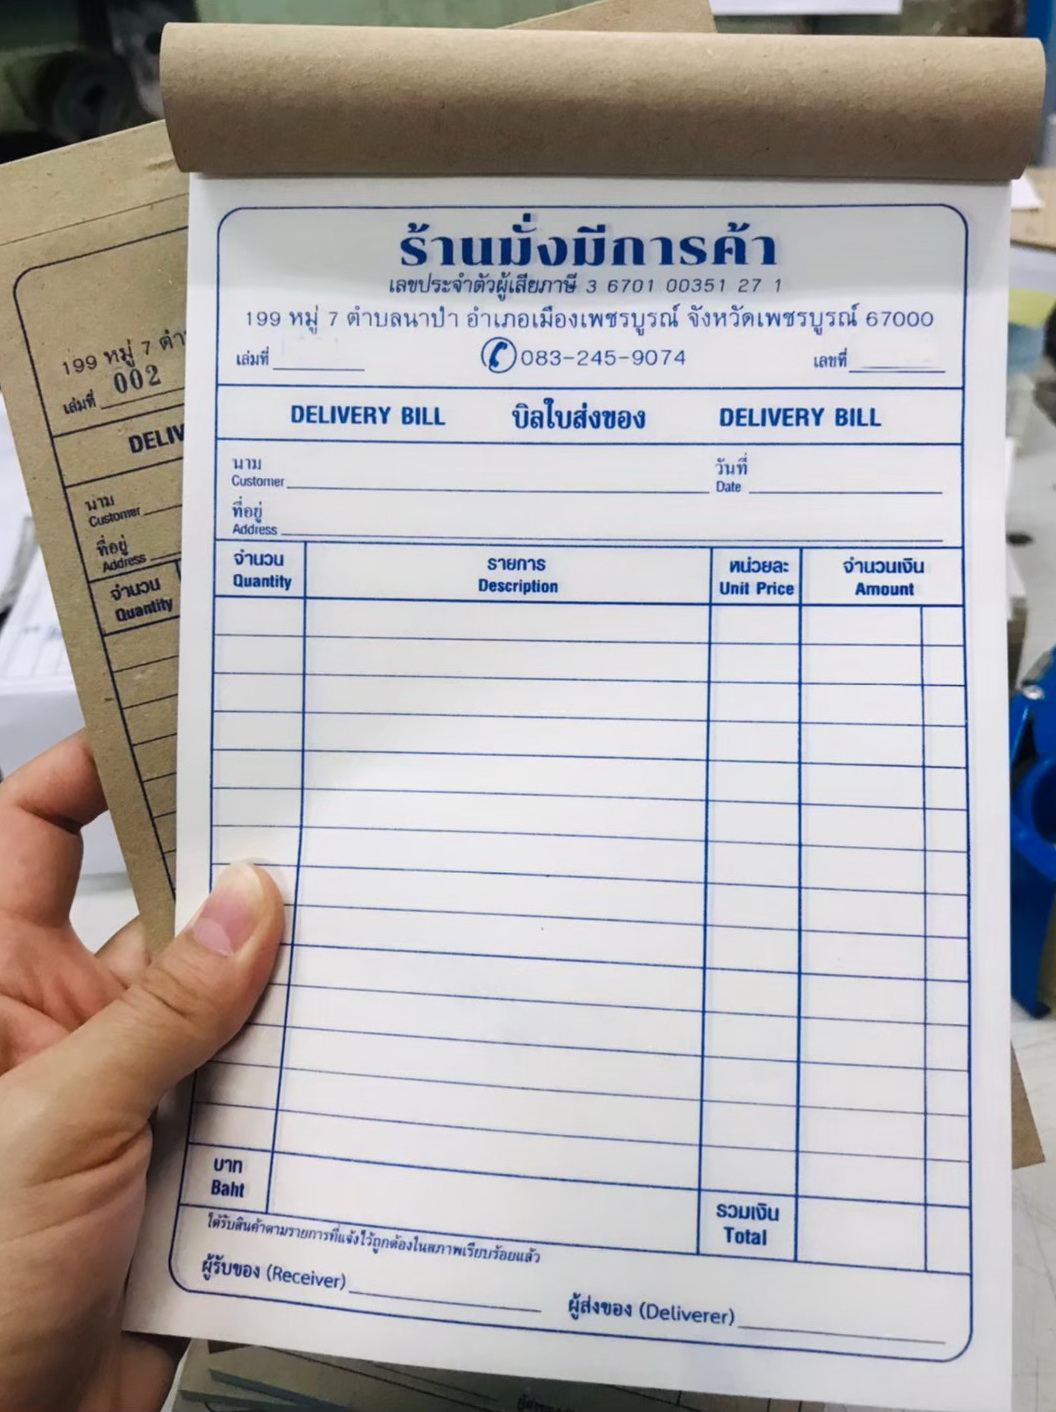 ร้านมั่งมีการค้า
เลขประจำตัวผู้เสียภาษี 3 6701 00351 27 1
199 หมู่ 7 ตำบลนาป่า อำเภอเมืองเพชรบูรณ์ จังหวัดเพชรบูรณ์ 67000
เล่มที่ 083-245-9074 เลขที่
DELIVERY BILL บิลใบส่งของ DELIVERY BILL
นาม วันที่
Customer Date
ที่อยู่
Address
จำนวน รายการ หน่วยละ จำนวนเงิน
Quantity Description Unit Price Amount
บาท รวมเงิน
Baht Total
ได้รับสินค้าตามรายการที่แจ้งไว้ถูกต้องในสภาพเรียบร้อยแล้ว
ผู้รับของ (Receiver) ผู้ส่งของ (Deliverer)
199 หมู่ 7
เล่มที่ 002
นาม
Customer
ที่อยู่
Address
จำนวน
Quantity